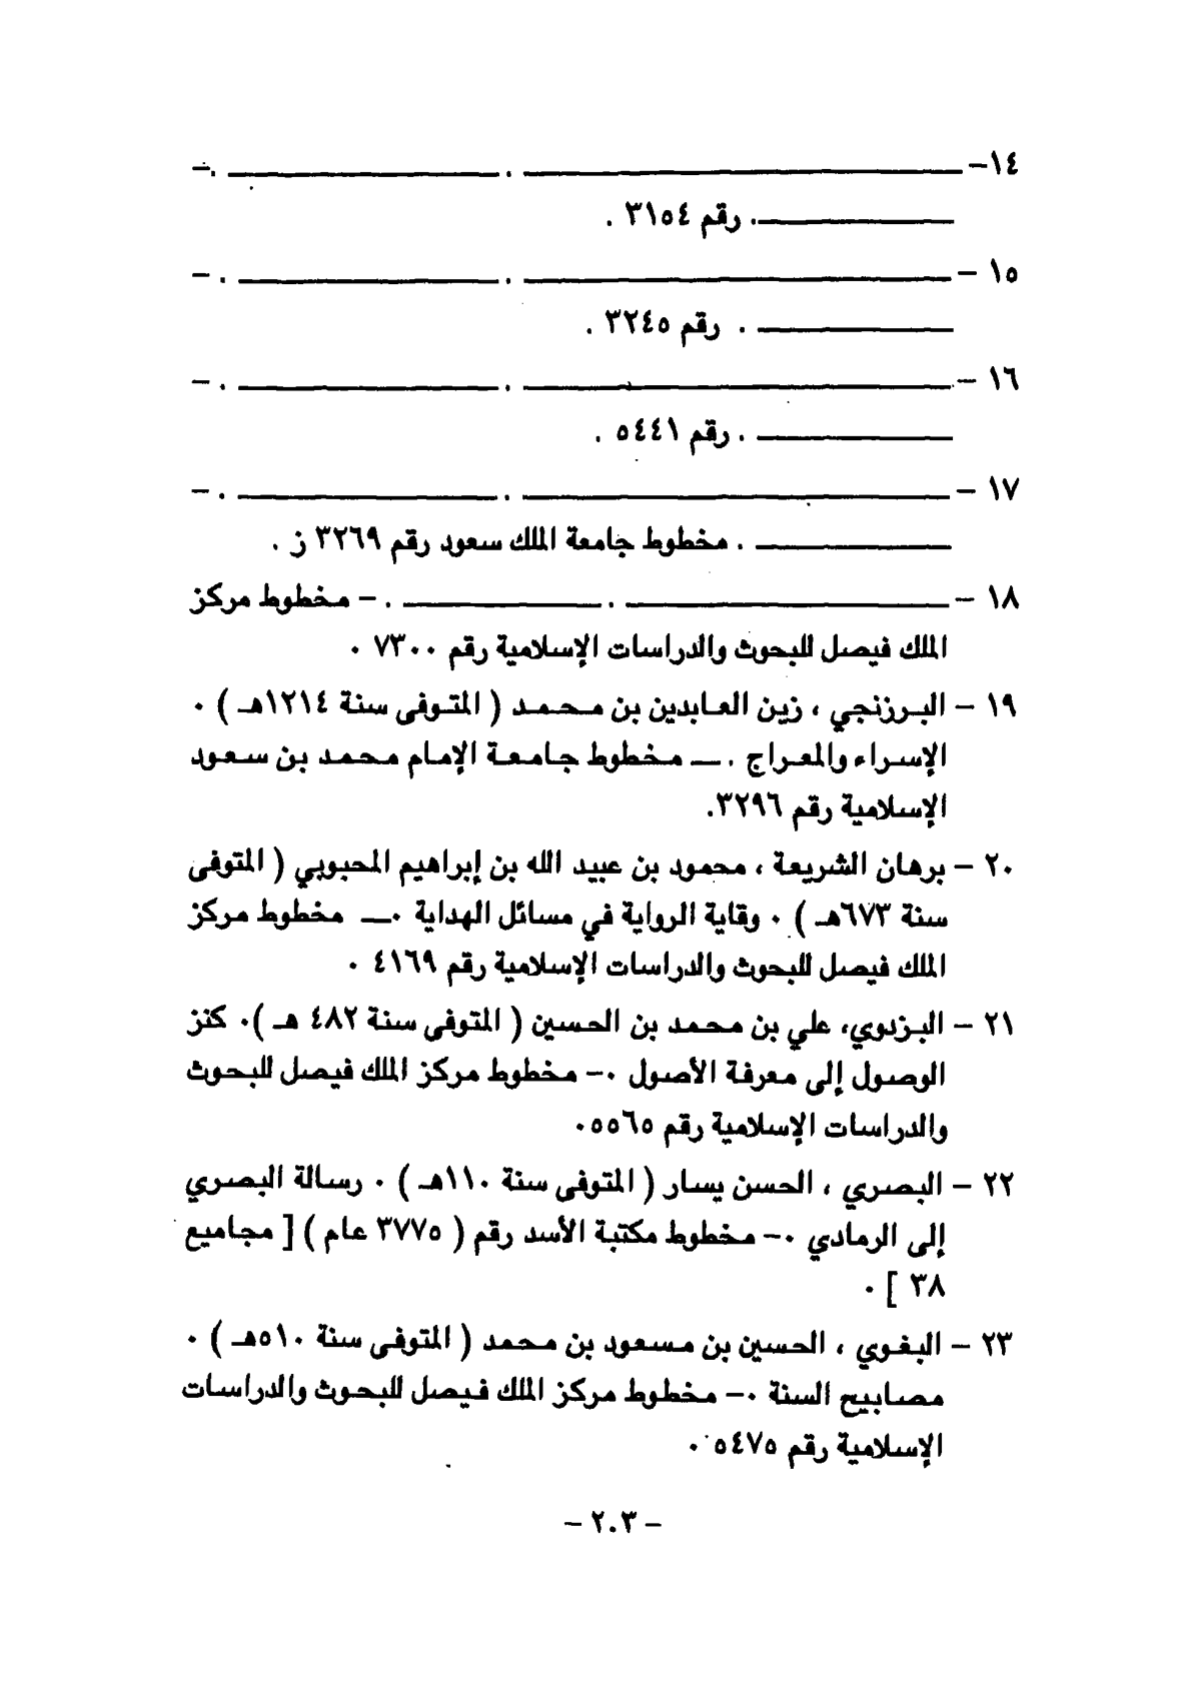 ١٤- ــــــــــــــــ . ــــــــــــــــ .-
ــــــــــــــــ. رقم ٣١٥٤ .
١٥ - ــــــــــــــــ . ــــــــــــــــ . -
ــــــــــــــــ . رقم ٣٢٤٥ .
١٦ - ــــــــــــــــ . ــــــــــــــــ . -
ــــــــــــــــ . رقم ٥٤٤١ .
١٧ - ــــــــــــــــ . ــــــــــــــــ . -
ــــــــــــــــ . مخطوط جامعة الملك سعود رقم ٣٢٦٩ ز .
١٨ - ــــــــــــــــ . ــــــــــــــــ . - مخطوط مركز
الملك فيصل للبحوث والدراسات الإسلامية رقم ٧٣٠٠ .
١٩ - البرزنجي ، زين العابدين بن محمد ( المتوفى سنة ١٢١٤هـ ) .
الإسراء والمعراج . ـــ مخطوط جامعة الإمام محمد بن سعود
الإسلامية رقم ٣٢٩٦.
٢٠ - برهان الشريعة ، محمود بن عبيد الله بن إبراهيم المحبوبي ( المتوفى
سنة ٦٧٣هـ ) . وقاية الرواية في مسائل الهداية .ـــ مخطوط مركز
الملك فيصل للبحوث والدراسات الإسلامية رقم ٤١٦٩ .
٢١ - البزدوي، علي بن محمد بن الحسين ( المتوفى سنة ٤٨٢ هـ ). كنز
الوصول إلى معرفة الأصول .- مخطوط مركز الملك فيصل للبحوث
والدراسات الإسلامية رقم ٥٥٦٥.
٢٢ - البصري ، الحسن يسار ( المتوفى سنة ١١٠هـ ) . رسالة البصري
إلى الرمادي .- مخطوط مكتبة الأسد رقم ( ٣٧٧٥ عام ) [ مجاميع
٣٨ ] .
٢٣ - البغوي ، الحسين بن مسعود بن محمد ( المتوفى سنة ٥١٠هـ ) .
مصابيح السنة .- مخطوط مركز الملك فيصل للبحوث والدراسات
الإسلامية رقم ٥٤٧٥ .
- ٢٠٣ -